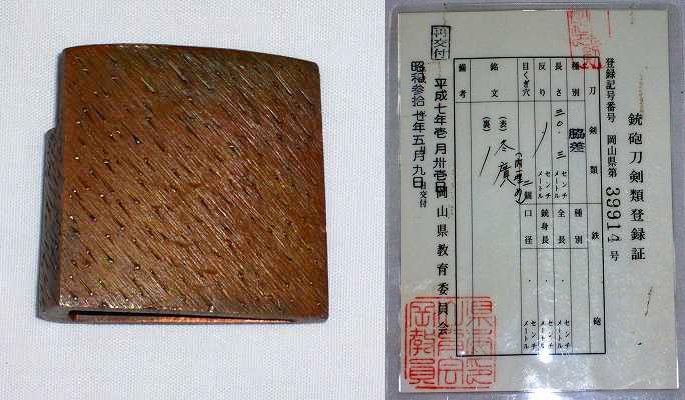 銃砲刀剣類登録証
登録記号番号 岡山県第 39914 号
刀剣類
鉄砲
種別 脇差
種別
長さ 三〇.三 センチメートル
全長 . センチメートル
反り センチメートル
銃身長 . センチメートル
目くぎ穴 二個
口径 . センチメートル
銘文
(表) 冬廣
(裏)
備考
再交付
平成七年壱月卅壱日
岡山県教育委員会
昭和参拾 年五月九日 交付